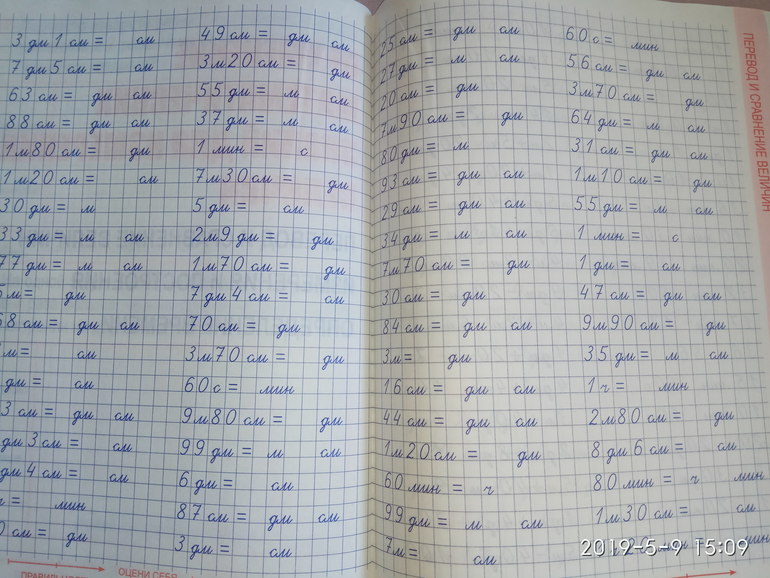 3 дм 1 см = см
7 дм 5 см = см
63 см = дм см
88 см = дм см
1 м 80 см = дм
1 м 20 см = см
30 дм = м
33 дм = м см
77 дм = м см
м = дм
68 см = дм см
м = см
дм = см
3 см = дм см
дм 3 см = см
дм 4 см = см
ч = мин
0 см = дм
49 см = дм см
3 м 20 см = дм
55 дм = м см
37 дм = м см
1 мин = с
7 м 30 см = дм
5 дм = см
2 м 9 дм = дм
1 м 70 см = дм
7 дм 4 см = см
70 см = дм
3 м 70 см = дм
60 с = мин
9 м 80 см = дм
99 дм = м см
6 дм = см
87 см = дм см
3 дм = см
ОЦЕНИ СЕБЯ
25 см = дм см
27 дм = м см
20 см = дм
7 м 90 см = дм
80 дм = м
93 см = дм см
29 см = дм см
34 дм = м см
7 м 70 см = дм
30 см = дм
84 см = дм см
3 м = дм
16 см = дм см
44 см = дм см
1 м 20 см = дм
60 мин = ч
99 дм = м см
7 м = см
60 с = мин
56 см = дм см
3 м 70 см = дм
64 дм = м см
31 см = дм см
1 м 10 см = дм
55 дм = м см
1 мин = с
1 дм = см
47 см = дм см
9 м 90 см = дм
35 дм = м см
1 ч = мин
2 м 80 см = дм
8 дм 6 см = см
80 мин = ч мин
1 м 30 см = дм
ПЕРЕВОД И СРАВНЕНИЕ ВЕЛИЧИН
2019-5-9 15:09